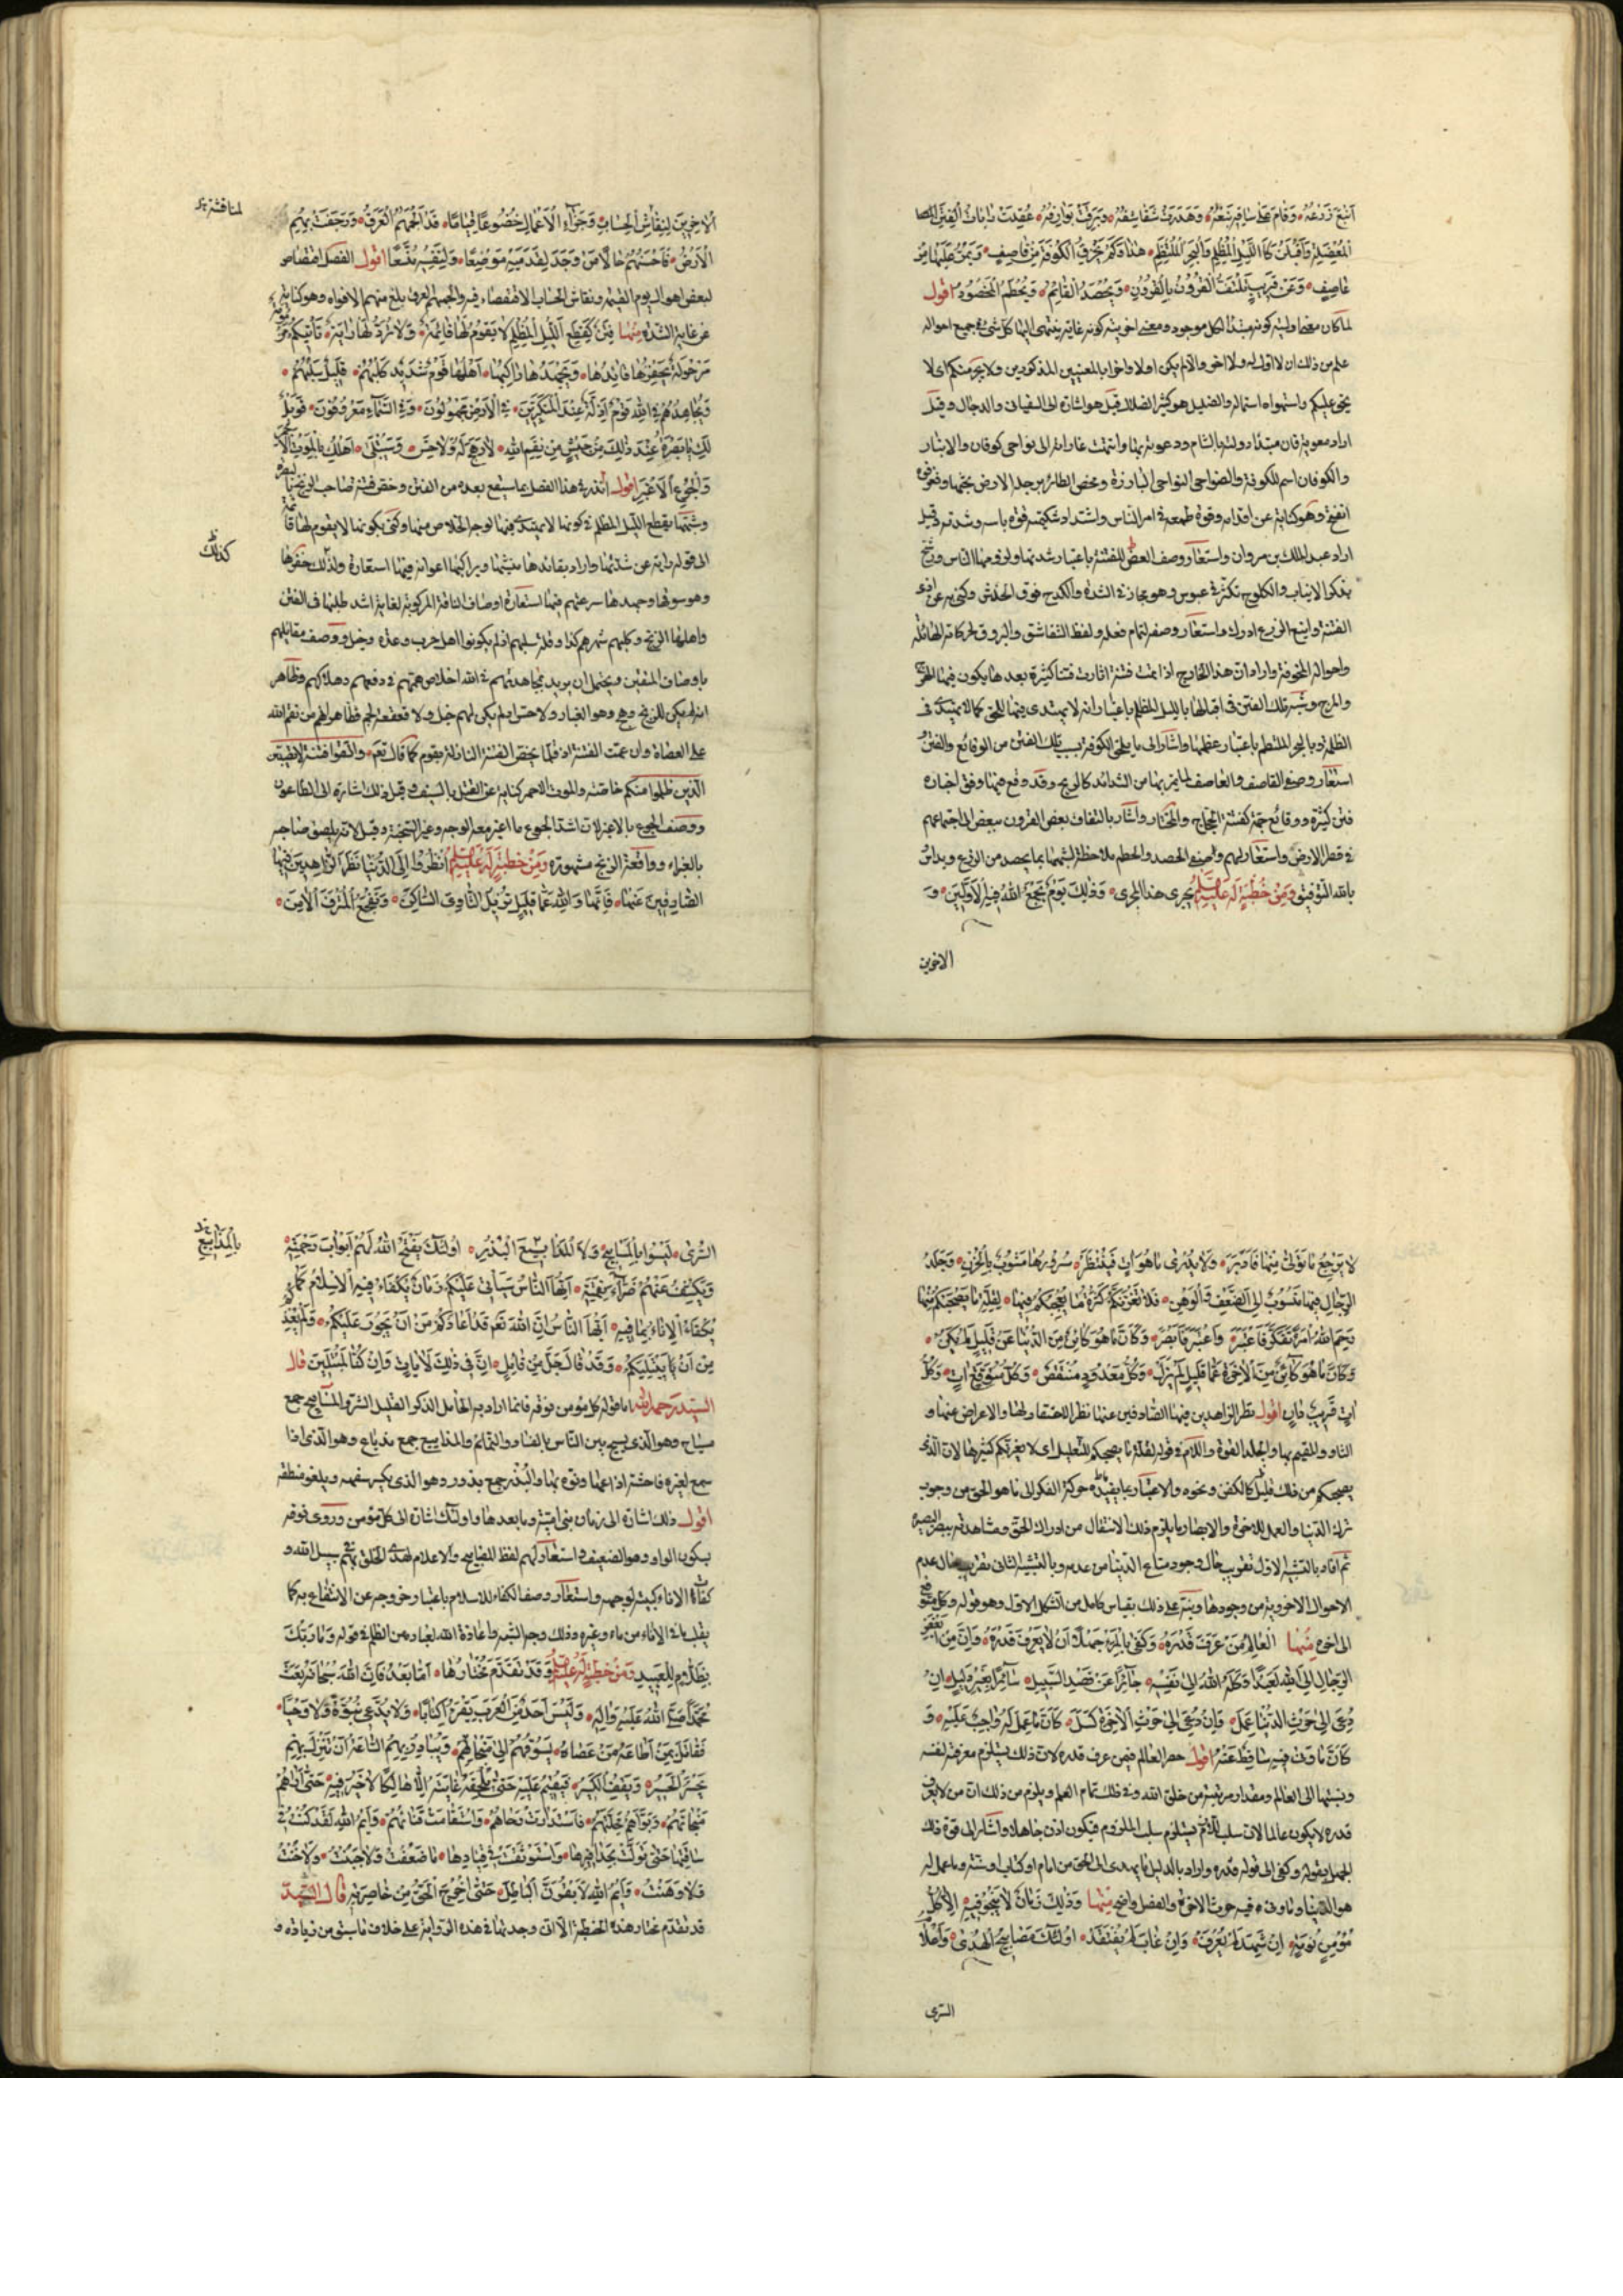 اَينَعَ زَرْعُهُ وَقَامَ عَلىٰ سَاقِهِ يَنْعُهُ وَهَدَرَتْ شَقَاشِقُهُ وَبَرَقَتْ بَوَارِقُهُ عُقِدَتْ رَايَاتُ الْفِتَنِ
الْمُعْضِلَةِ وَاَقْبَلْنَ كَاللَّيْلِ الْمُظْلِمِ وَالْبَحْرِ الْمُلْتَطِمِ هٰذَا وَكَمْ يَخْرِقُ الْكُوفَةَ مِنْ قَاصِفٍ وَيَمُرُّ عَلَيْهَا مِنْ
عَاصِفٍ وَعَنْ قَرِيبٍ تَلْتَفُّ الْقُرُونُ بِالْقُرُونِ وَيُحْصَدُ الْقَائِمُ وَيُحْطَمُ الْمَحْصُودُ اقول
لما كان معنى اوليته كونه مبتدأ لكل موجود ومعنى اخريته كونه غاية ينتهى اليها كل شئ فى جميع احواله
علم من ذلك ان لا اول له ولا اخر والا لم يكن اولا واخرا بالمعنيين المذكورين ولا يجرمنكم اى لا
يحق عليكم واستهواه استماله والضليل هو كثير الضلال قيل هو اشارة الى السفيانى والدجال وقيل
اراد معوية فان مبتدأ دولته بالشام ودعوته بها وانتهت غاراته الى نواحى كوفان والانبار
والكوفان اسم للكوفة والضواحى النواحى البارزة وفحص الطائر برجله الارض بحثها وفغر فوه
انفتح وهو كناية عن اقدامه وقوة طمعه فى امر الناس واشتداد شكيمته قوة باسه وشدته وقيل
اراد عبد الملك بن مروان واستعار وصف العض للفتنة باعتبار شدتها ولوقوعها الناس ورشح
بذكر الانياب والكلوح تكثر فى عبوس وهو مجاز فى الشدة والكدح فوق الخدش وكنى به عن اذى
الفتنة واينع الزرع ادرك واستعار وصفه لتمام فعله ولفظ الشقاشق والبروق لحركاته الهائلة
واحواله المخوفة واراد ان هذا الخارج اذا تمت فتنته اثارت فتنا كثيرة بعدها يكون فيها الهرج
والمرج وشبه تلك الفتن فى اقبالها بالليل المظلم باعتبار انه لا يهتدى فيها للحق كما لا يهتدى فى
الظلمة وبالبحر الملتطم باعتبار عظمها واشار الى ما يلحق الكوفة بسبب تلك الفتن من الوقائع والفتن
استعار وصفى القاصف والعاصف لما يمر بها من الشدائد كالريح وقد وقع فيها وفق اخباره
فتن كثيرة ووقائع جمة كفتنة الحجاج والمختار واشار بالتفاف بعض القرون ببعض الى اجتماعهم
فى قطر الارض واستعار لهم وصفى الحصد والحطم ملاحظة لشبهها بما يحصد من الزرع ويداس
بالله التوفيق وَمِنْ خُطْبَةٍ لَهُ عَلَيْهِ السَّلَمُ يجرى هذا المجرى وَذٰلِكَ يَوْمٌ يَجْمَعُ اللّٰهُ فِيهِ الْاَوَّلِينَ وَ
الاخرين
الْاٰخِرِينَ لِنِقَاشِ الْحِسَابِ وَجَزَاءِ الْاَعْمَالِ خُضُوعًا قِيَامًا قَدْ اَلْجَمَهُمُ الْعَرَقُ وَرَجَفَتْ بِهِمُ
لمناقشة
الْاَرْضُ فَاَحْسَنُهُمْ حَالًا مَنْ وَجَدَ لِقَدَمَيْهِ مَوْضِعًا وَلِنَفْسِهِ مُتَّسَعًا اقول الفصل اقتصاص
لبعض اهوال يوم القيمة ونقاش الحساب الاستقصاء فيه والجمهم العرق بلغ منهم الافواه وهو كناية
عن غاية الشدة مِنْهَا فِتَنٌ كَقِطَعِ اللَّيْلِ الْمُظْلِمِ لَا تَقُومُ لَهَا قَائِمَةٌ وَلَا تُرَدُّ لَهَا رَايَةٌ تَأْتِيكُمْ مَزْمُومَةً
مَرْحُولَةً يَحْفِزُهَا قَائِدُهَا وَيَجْهَدُهَا رَاكِبُهَا اَهْلُهَا قَوْمٌ شَدِيدٌ كَلَبُهُمْ قَلِيلٌ سَلَبُهُمْ
يُجَاهِدُهُمْ فِى اللّٰهِ قَوْمٌ اَذِلَّةٌ عِنْدَ الْمُتَكَبِّرِينَ فِى الْاَرْضِ مَجْهُولُونَ وَفِى السَّمَاءِ مَعْرُوفُونَ فَوَيْلٌ
لَكِ يَا بَصْرَةُ عِنْدَ ذٰلِكَ مِنْ جَيْشٍ مِنْ نِقَمِ اللّٰهِ لَا رَهَجَ لَهُ وَلَا حِسَّ وَسَيُبْتَلىٰ اَهْلُكِ بِالْمَوْتِ الْاَحْمَرِ
وَالْجُوعِ الْاَغْبَرِ اقول انذر فى هذا الفصل بما سيقع بعده من الفتن وخص فتنة صاحب الزنج بالبصرة
وشبهها بقطع الليل المظلم فى كونها لا يهتدى فيها لوجه الخلاص منها وكنى بكونها لا يقوم لها قائمة
كذلك
الى قوله راية عن شدتها واراد بقائدها منشئها وبراكبها اعوانه فيها استعارة ولذلك حفزها
وهو سوقها وجهدها سرعتهم فيها استعارة اوصاف الناقة المركوبة لغاية اشد طلبها فى الفتن
واهلها الزنج وكلبهم شرهم كذا وقلة سلبهم اذ لم يكونوا اهل حرب وعدة وخيل ووصف مقاتلهم
باوصاف المتقين ويحتمل ان يريد بمجاهدتهم فى الله اخلاص همتهم فى دفعهم وهلاكهم وظاهر
انه لم يكن للزنج رهج وهو الغبار ولا حس اذ لم يكن لهم خيل ولا قعقعة لجم فظاهر انهم من نقم الله
على العصاة وان عمت الفتنة اذ قلما يختص الفتنة النازلة بقوم كما قال تع واتقوا فتنة لا تصيبن
الذين ظلموا منكم خاصة والموت الاحمر كناية عن القتل بالسيف وقيل ذلك اشارة الى الطاعون
ووصف الجوع بالاغبر لان اشد الجوع ما اغبر معه الوجه وغير السحنة وقيل لانه يلصق صاحبه
بالغبراء وواقعة الزنج مشهورة وَمِنْ خُطْبَةٍ لَهُ عَلَيْهِ السَّلَمُ اُنْظُرُوا اِلَى الدُّنْيَا نَظَرَ الزَّاهِدِينَ فِيهَا
الصَّادِفِينَ عَنْهَا فَاِنَّهَا وَاللّٰهِ عَمَّا قَلِيلٍ تُزِيلُ الثَّاوِىَ السَّاكِنَ وَتَفْجَعُ الْمُتْرَفَ الْاٰمِنَ
لَا يَرْجِعُ مَا تَوَلّىٰ مِنْهَا فَاَدْبَرَ وَلَا يُدْرىٰ مَا هُوَ اٰتٍ فَيُنْتَظَرَ سُرُورُهَا مَشُوبٌ بِالْحُزْنِ وَجَلَدُ
الرِّجَالِ فِيهَا مَنْسُوبٌ اِلَى الضَّعْفِ وَالْوَهْنِ فَلَا تَغُرَّنَّكُمْ كَثْرَةُ مَا يُعْجِبُكُمْ فِيهَا لِقِلَّةِ مَا يَصْحَبُكُمْ مِنْهَا
رَحِمَ اللّٰهُ امْرَءً تَفَكَّرَ فَاعْتَبَرَ وَاعْتَبَرَ فَاَبْصَرَ وَكَاَنَّ مَا هُوَ كَائِنٌ مِنَ الدُّنْيَا عَنْ قَلِيلٍ لَمْ يَكُنْ
وَكَاَنَّ مَا هُوَ كَائِنٌ مِنَ الْاٰخِرَةِ عَمَّا قَلِيلٍ لَمْ يَزَلْ وَكُلُّ مَعْدُودٍ مُنْتَقِصٌ وَكُلُّ مُتَوَقَّعٍ اٰتٍ وَكُلُّ
اٰتٍ قَرِيبٌ دَانٍ اقول نظر الزاهدين فيها الصادفين عنها نظر الاحتقار لها والاعراض عنها و
الثاو والمقيم بها والجلد القوة واللام فى قوله لقلة ما يصحبكم للتعليل اى لا يغرنكم كثيرها لان الذى
يصحبكم من ذلك قليل كالكفن ونحوه والاعتبار ما يفيده حركة الفكر الى ما هو الحق من وجوب
ترك الدنيا والعمل للاخرة والابصار ما يلزم ذلك الانتقال من ادراك الحق ومشاهدته ببصر البصيرة
ثم افاد بالتشبيه الاول تقريب حال وجود متاع الدنيا من عدمه وبالتشبيه الثانى تقريب حال عدم
الاحوال الاخروية من وجودها ونبه على ذلك بقياس كامل من الشكل الاول وهو قوله وكل متوقع
الى اخره مِنْهَا الْعَالِمُ مَنْ عَرَفَ قَدْرَهُ وَكَفىٰ بِالْمَرْءِ جَهْلًا اَنْ لَا يَعْرِفَ قَدْرَهُ وَاِنَّ مِنْ اَبْغَضِ
الرِّجَالِ اِلَى اللّٰهِ لَعَبْدًا وَكَلَهُ اللّٰهُ اِلىٰ نَفْسِهِ جَائِرًا عَنْ قَصْدِ السَّبِيلِ سَائِرًا بِغَيْرِ دَلِيلٍ اِنْ
دُعِىَ اِلىٰ حَرْثِ الدُّنْيَا عَمِلَ وَاِنْ دُعِىَ اِلىٰ حَرْثِ الْاٰخِرَةِ كَسِلَ كَاَنَّ مَا عَمِلَ لَهُ وَاجِبٌ عَلَيْهِ وَ
كَاَنَّ مَا وَنىٰ فِيهِ سَاقِطٌ عَنْهُ اقول حصر العالم فيمن عرف قدره لان ذلك يستلزم معرفته لنفسه
ونسبتها الى العالم ومقدار مرتبته من خلق الله وفى ذلك تمام العلم ويلزم من ذلك ان من لا يعرف
قدره لا يكون عالما لان سلب اللازم يستلزم سلب الملزوم فيكون اذن جاهلا واشار الى قوة ذلك
الجهل بقوله وكفى الى قوله قدره واراد بالدليل ما يهدى الى الحق من امام او كتاب او سنة وما عمل له
هو الدنيا وما ونى فيه حرث الاخرة والفصل واضح مِنْهَا وَذٰلِكَ زَمَانٌ لَا يَنْجُو فِيهِ اِلَّا كُلُّ
مُؤْمِنٍ نُوَمَةٍ اِنْ شَهِدَ لَمْ يُعْرَفْ وَاِنْ غَابَ لَمْ يُفْتَقَدْ اُولٰئِكَ مَصَابِيحُ الْهُدىٰ وَاَعْلَامُ
السرى
السُّرىٰ لَيْسُوا بِالْمَسَايِيحِ وَلَا الْمَذَايِيعِ الْبُذُرِ اُولٰئِكَ يَفْتَحُ اللّٰهُ لَهُمْ اَبْوَابَ رَحْمَتِهِ
بالمذاييع
وَيَكْشِفُ عَنْهُمْ ضَرَّاءَ نِقْمَتِهِ اَيُّهَا النَّاسُ سَيَأْتِى عَلَيْكُمْ زَمَانٌ يُكْفَاءُ فِيهِ الْاِسْلَامُ كَمَا
يُكْفَاءُ الْاِنَاءُ بِمَا فِيهِ اَيُّهَا النَّاسُ اِنَّ اللّٰهَ تَعَ قَدْ اَعَاذَكُمْ مِنْ اَنْ يَجُورَ عَلَيْكُمْ وَلَمْ يُعِذْكُمْ
مِنْ اَنْ يَبْتَلِيَكُمْ وَقَدْ قَالَ جَلَّ مِنْ قَائِلٍ اِنَّ فِى ذٰلِكَ لَاٰيَاتٍ وَاِنْ كُنَّا لَمُبْتَلِينَ قال
السيد رحمه الله اما قوله كل مؤمن نومة فانما اراد به الخامل الذكر القليل الشر والمساييح جمع
مسياح وهو الذى يسيح بين الناس بالفساد والنمائم والمذاييع جمع مذياع وهو الذى اذا
سمع لغيره فاحشة اذاعها ونوه بها والبذر جمع بذور وهو الذى يكثر سفهه ويلغو منطقه
اقول ذلك اشارة الى زمان بنى امية وما بعدها واولئك اشارة الى كل مؤمن وروى نومة
بسكون الواو وهو الضعيف واستعار لهم لفظ المصابيح والاعلام لهدى الخلق بهم فى سبيل الله و
كفأت الاناء كببته لوجهه واستعار وصف الكفاء للاسلام باعتبار خروجه عن الانتفاع به كما
يقلب ما فى الاناء من ماء وغيره وذلك وجه الشبه واعاذة الله لعباده من الظلم فى قوله وما ربك
بظلام للعبيد وَمِنْ خُطْبَةٍ لَهُ عَلَيْهِ السَّلَمُ وَقَدْ تَقَدَّمَ مُخْتَارُهَا اَمَّا بَعْدُ فَاِنَّ اللّٰهَ سُبْحَانَهُ بَعَثَ
مُحَمَّدًا صَلَّى اللّٰهُ عَلَيْهِ وَاٰلِهِ وَلَيْسَ اَحَدٌ مِنَ الْعَرَبِ يَقْرَءُ كِتَابًا وَلَا يَدَّعِى نُبُوَّةً وَلَا وَحْيًا
فَقَاتَلَ بِمَنْ اَطَاعَهُ مَنْ عَصَاهُ يَسُوقُهُمْ اِلىٰ مَنْجَاتِهِمْ وَيُبَادِرُ بِهِمُ السَّاعَةَ اَنْ تَنْزِلَ بِهِمْ
يَحْسَرُ الْحَسِيرُ وَيَقِفُ الْكَسِيرُ فَيُقِيمُ عَلَيْهِ حَتّىٰ يُلْحِقَهُ غَايَتَهُ اِلَّا هَالِكًا لَا خَيْرَ فِيهِ حَتّىٰ اَرَاهُمْ
مَنْجَاتَهُمْ وَبَوَّاَهُمْ مَحَلَّتَهُمْ فَاسْتَدَارَتْ رَحَاهُمْ وَاسْتَقَامَتْ قَنَاتُهُمْ وَايْمُ اللّٰهِ لَقَدْ كُنْتُ فِى
سَاقَتِهَا حَتّىٰ تَوَلَّتْ بِحَذَافِيرِهَا وَاسْتَوْثَقَتْ فِى قِيَادِهَا مَا ضَعُفْتُ وَلَا جَبُنْتُ وَلَا خُنْتُ
وَلَا وَهَنْتُ وَايْمُ اللّٰهِ لَاَبْقُرَنَّ الْبَاطِلَ حَتّىٰ اُخْرِجَ الْحَقَّ مِنْ خَاصِرَتِهِ قال السيد
قد تقدم مختار هذه الخطبة الا انى وجدتها فى هذه الرواية على خلاف ما سبق من زيادة و